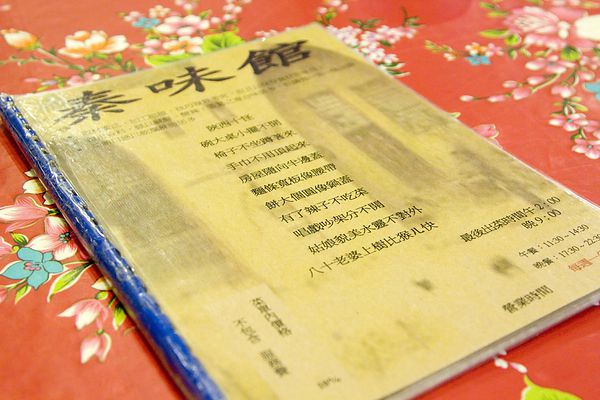 秦味館
陝西十怪
碗大桌小擺不開
椅子不坐蹲著來
手巾不用頂起來
房屋雖向半邊蓋
麵條寬板像腰帶
餅大個圓像鍋蓋
有了辣子不吃菜
唱戲吵架分不開
姑娘貌美水靈不對外
八十老婆上樹比猴儿快
最後出菜時間午2:00
晚9:00
午餐:11:30~14:30
晚餐:17:30~22:30
營業時間
菜單內價格
不包含 服務費
10%